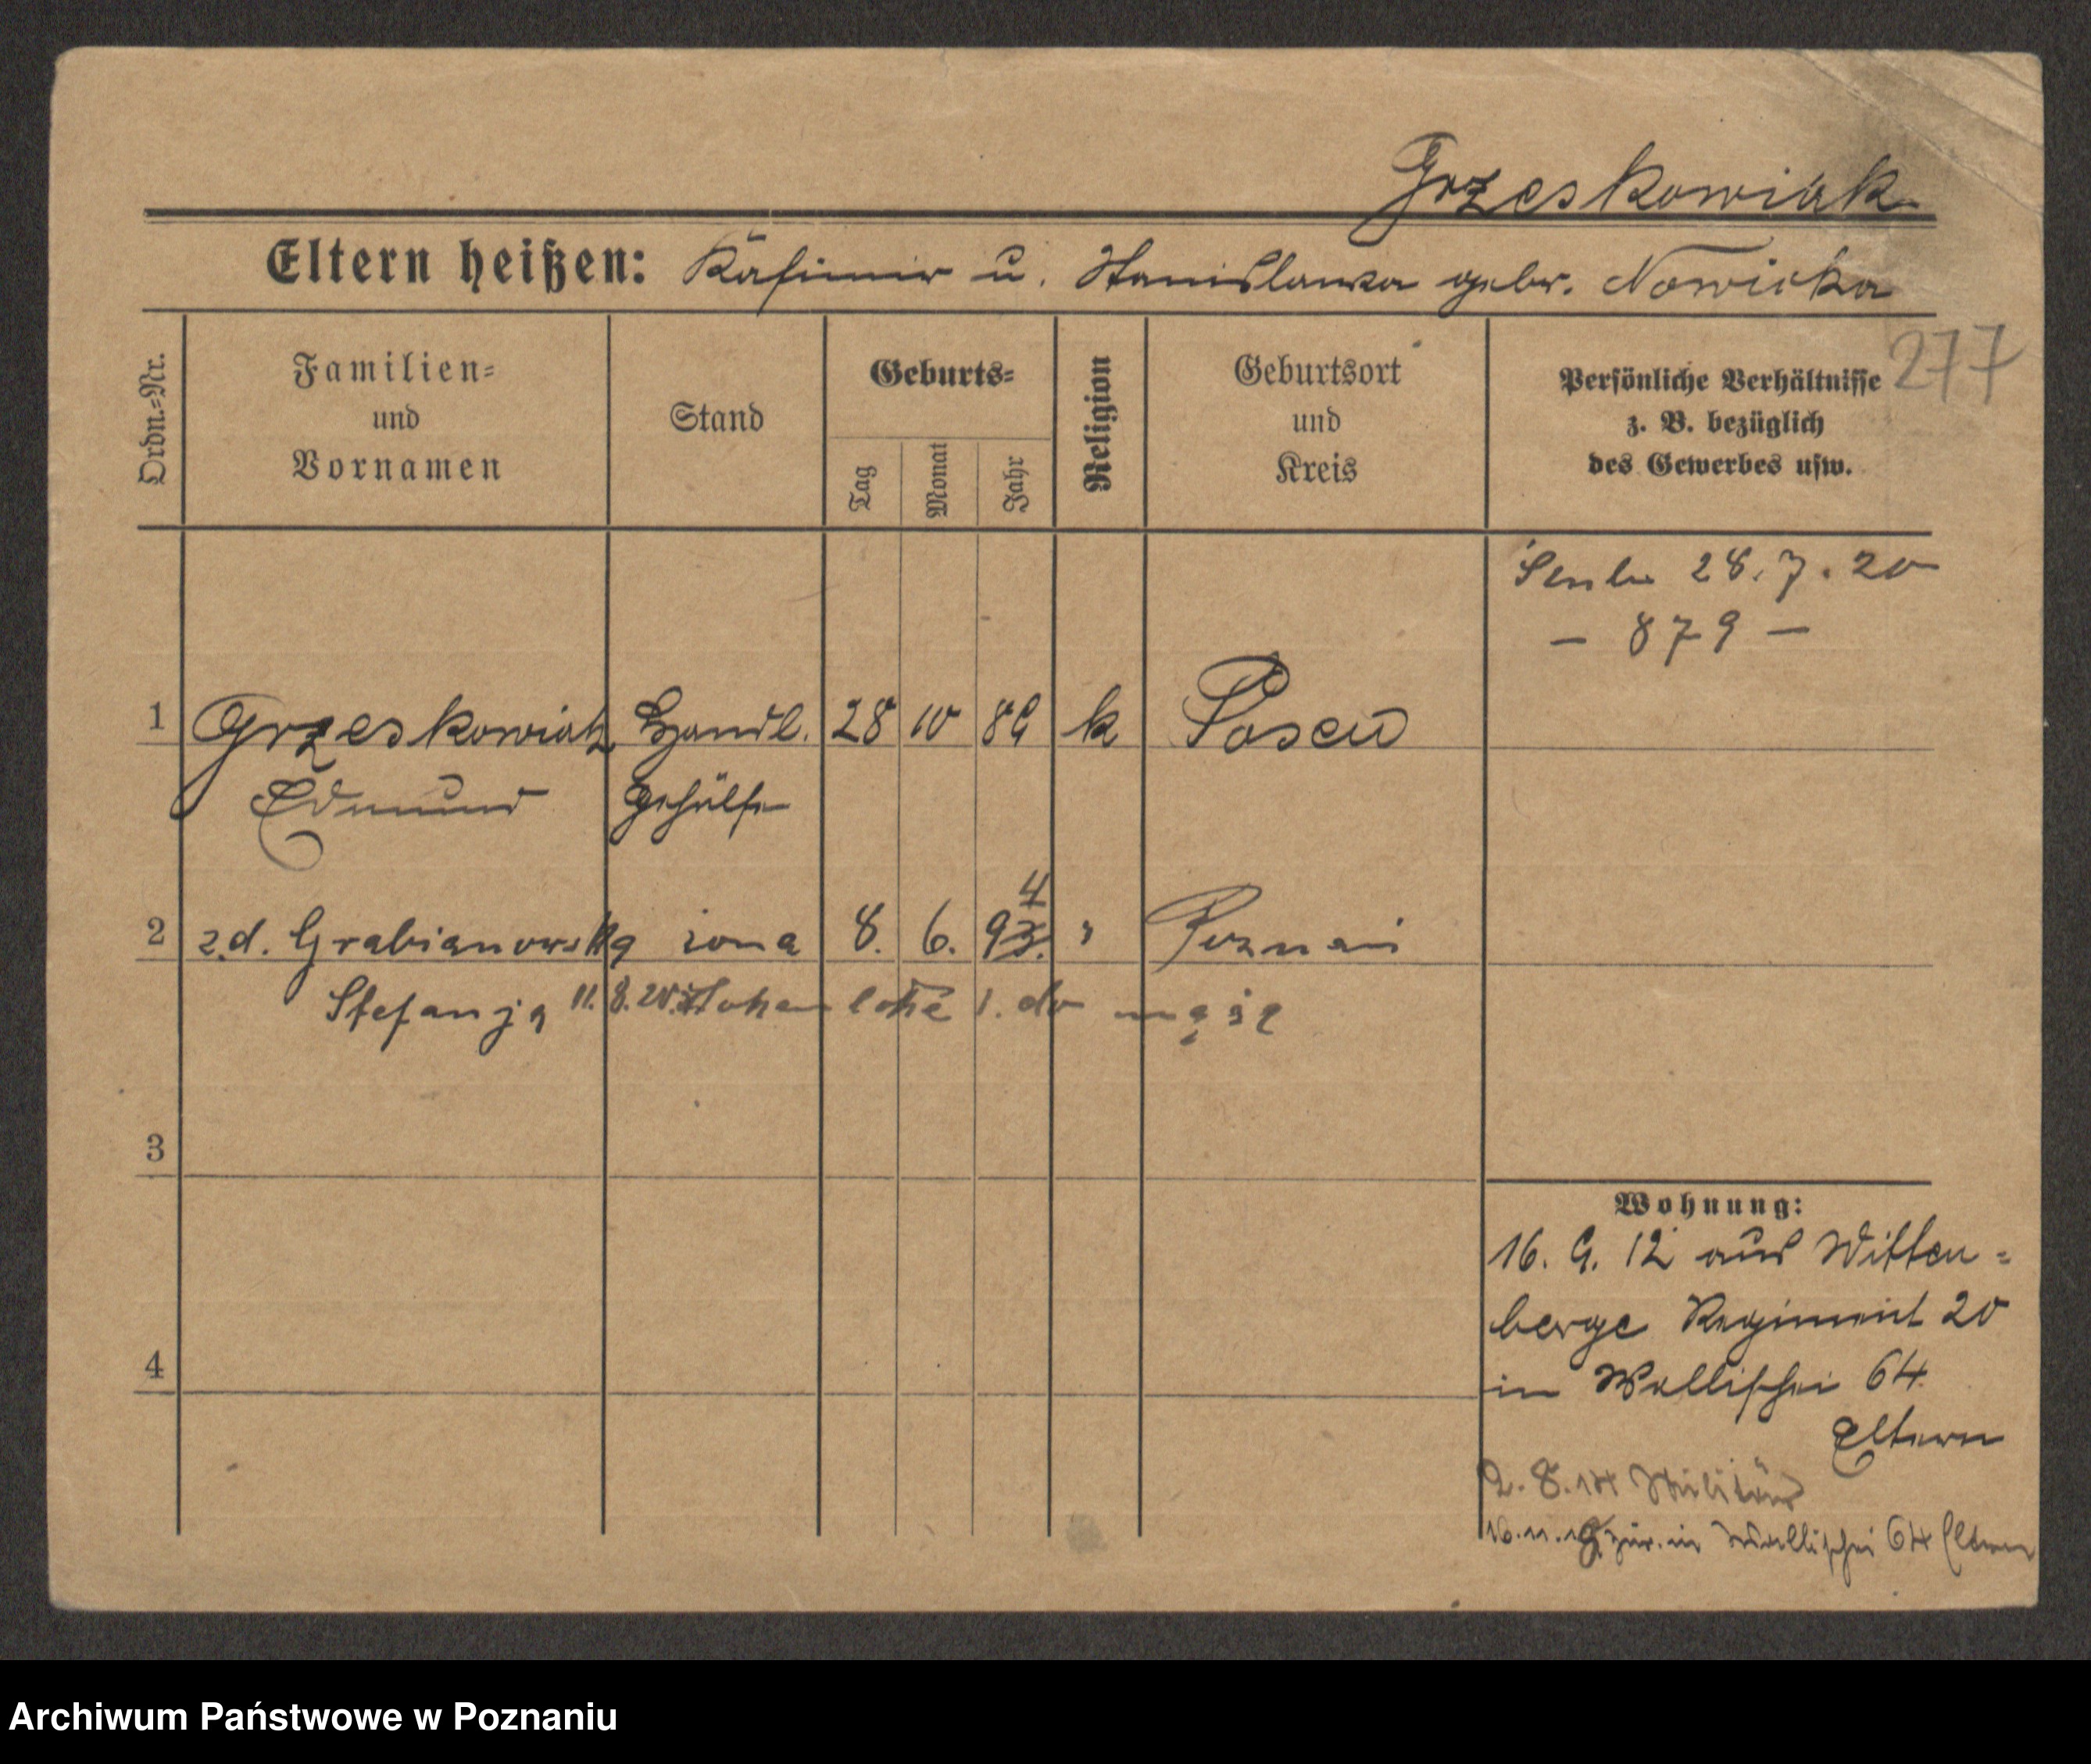 Grzeskowiak
Eltern heißen: Kasimir u. Stanislawa gebr. Nowicka
277
Ordn.-Nr.
Familien-
und
Vornamen
Stand
Geburts-
Tag
Monat
Jahr
Religion
Geburtsort
und
Kreis
Persönliche Verhältnisse
z. B. bezüglich
des Gewerbes usw.
28.7.20
- 879 -
1 Grzeskowiak Handl. 28 10 89 k Posen
Edmund Gehülfe
4
2 z.d. Grabianowska żona 8. 6. 93. " Poznań
Stefanja 11.8.20. 1. do męża
3
4
Wohnung:
16. 9. 12 aus Witten-
berge Regiment 20
in Wallischei 64
Eltern
2. 8. 14 Militär
16. 11. 18 zür. in Wallischei 64 Eltern
Archiwum Państwowe w Poznaniu